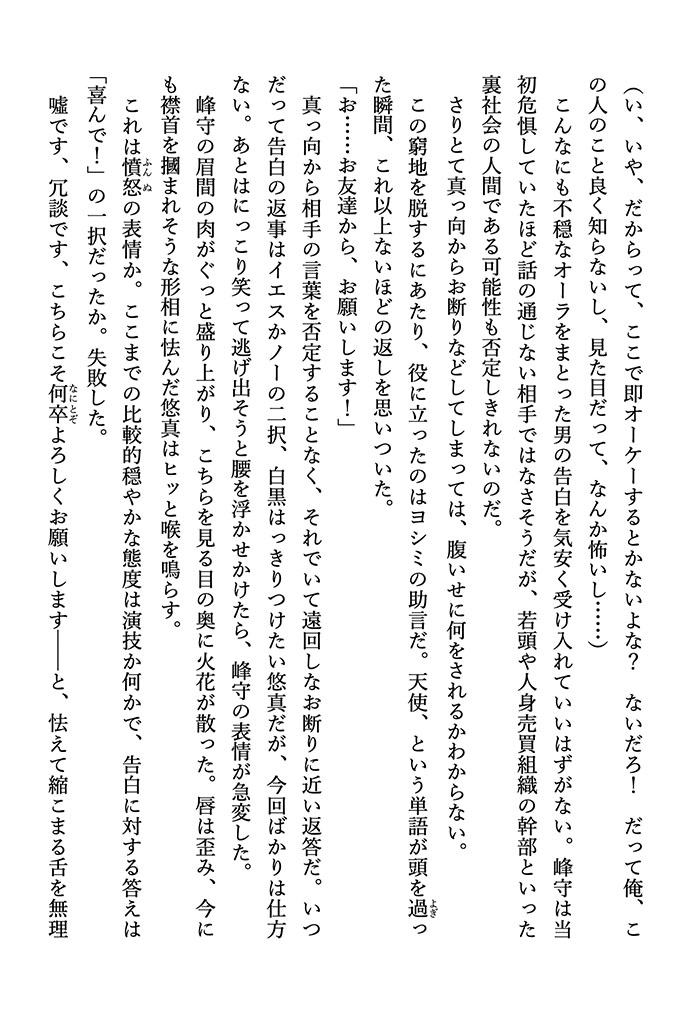 （い、いや、だからって、ここで即オーケーするとかないよな？　ないだろ！　だって俺、こ
の人のこと良く知らないし、見た目だって、なんか怖いし……）
　こんなにも不穏なオーラをまとった男の告白を気安く受け入れていいはずがない。峰守は当
初危惧していたほど話の通じない相手ではなさそうだが、若頭や人身売買組織の幹部といった
裏社会の人間である可能性も否定しきれないのだ。
　さりとて真っ向からお断りなどしてしまっては、腹いせに何をされるかわからない。
　この窮地を脱するにあたり、役に立ったのはヨシミの助言だ。天使、という単語が頭を過っ
た瞬間、これ以上ないほどの返しを思いついた。
「お……お友達から、お願いします！」
　真っ向から相手の言葉を否定することなく、それでいて遠回しなお断りに近い返答だ。いつ
だって告白の返事はイエスかノーの二択、白黒はっきりつけたい悠真だが、今回ばかりは仕方
ない。あとはにっこり笑って逃げ出そうと腰を浮かせかけたら、峰守の表情が急変した。
　峰守の眉間の肉がぐっと盛り上がり、こちらを見る目の奥に火花が散った。唇は歪み、今に
も襟首を摑まれそうな形相に怯んだ悠真はヒッと喉を鳴らす。
　これは憤怒の表情か。ここまでの比較的穏やかな態度は演技か何かで、告白に対する答えは
「喜んで！」の一択だったか。失敗した。
　嘘です、冗談です、こちらこそ何卒よろしくお願いします――と、怯えて縮こまる舌を無理